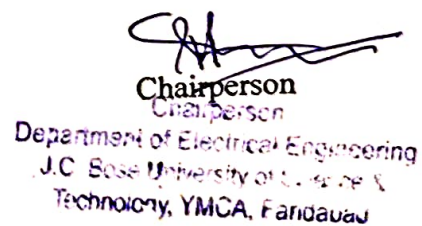 Chairperson
Chairperson
Department of Electrical Engineering
J.C. Bose University of Science &
Technology, YMCA, Faridabad